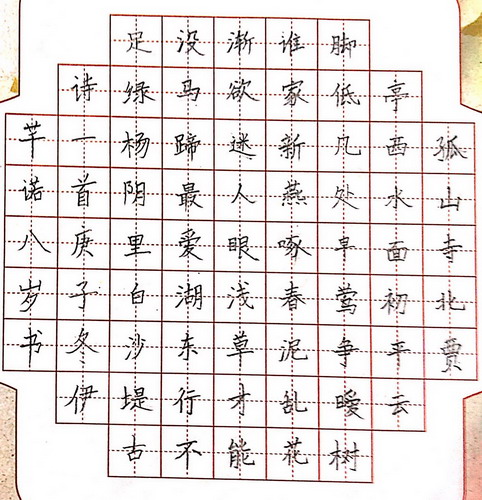 孤山寺北贾
亭西水面初平云
脚低几处早莺争暖树
谁家新燕啄春泥乱花
渐欲迷人眼浅草才能
没马蹄最爱湖东行不
足绿杨阴里白沙堤古
诗一首庚子冬伊
芊诺八岁书